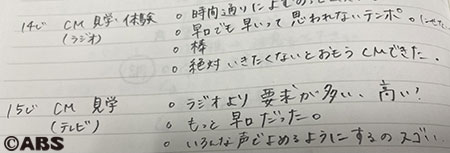 14じ CM 見学・体験 ○ 時間通りによむ
(ラジオ) ○ 早口でも早いって思われないテンポ。にせた
○ 棒
○ 絶対いきたくないとおもうCMできた。
15じ CM 見学 ○ ラジオより要求が多い、高い!
(テレビ) ○ もっと早口だった。
○ いろんな声でよめるようにするのスゴい
©ABS